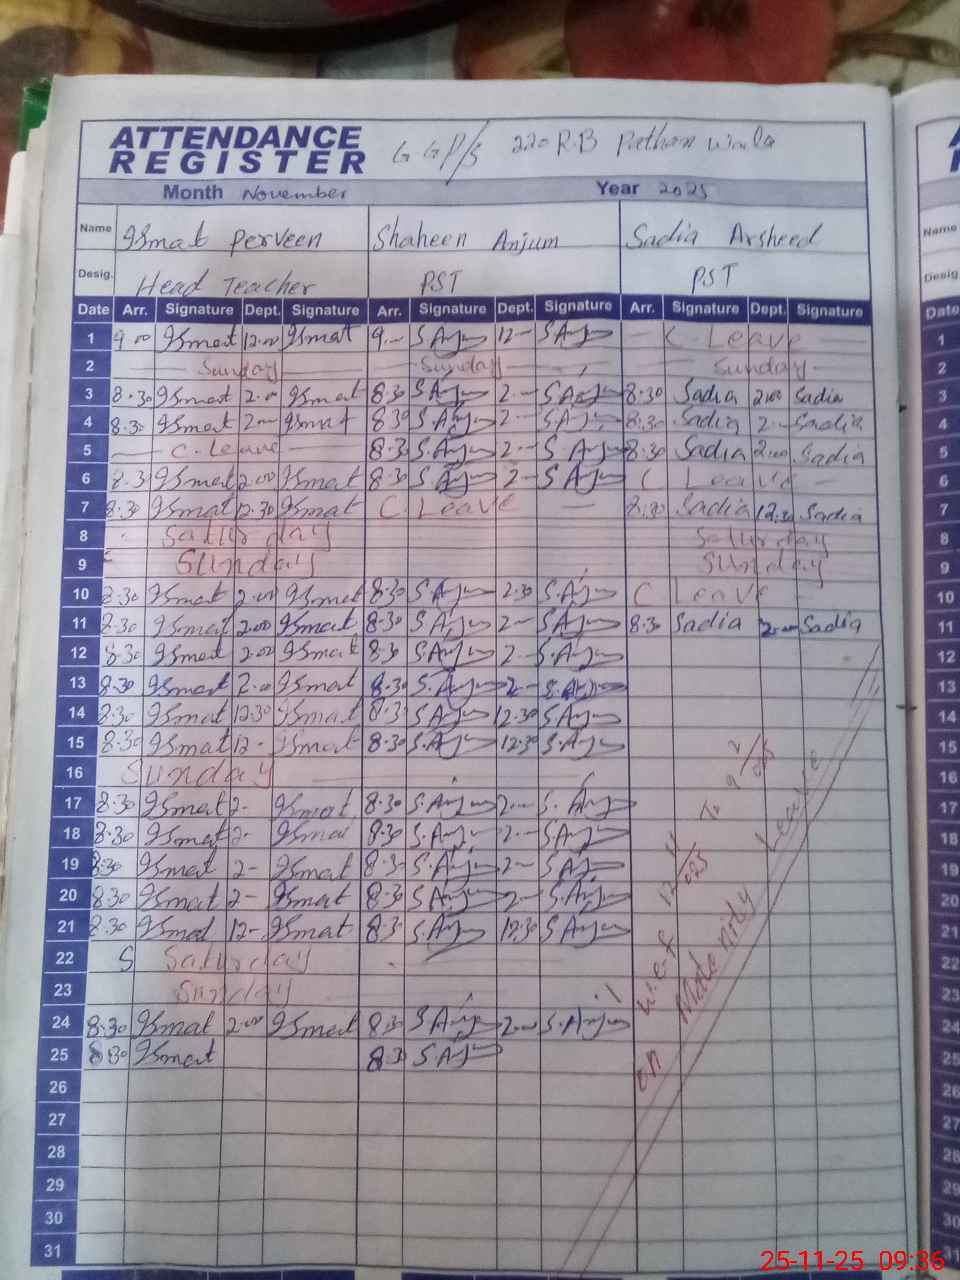 ATTENDANCE
REGISTER
G G P/S 220 R.B Pathan Wala
Month November Year 2025
Name Ismat Perveen Shaheen Anjum Sadia Arsheed
Desig. Head Teacher PST PST
Date Arr. Signature Dept. Signature Arr. Signature Dept. Signature Arr. Signature Dept. Signature
1 9.00 Ismat 12.00 Ismat 9.- S.Anjum 12- S.Anjum C. Leave
2 Sunday Sunday Sunday
3 8.30 Ismat 2.00 Ismat 8.30 S.Anjum 2- S.Anjum 8.30 Sadia 2.00 Sadia
4 8.30 Ismat 2- Ismat 8.30 S.Anjum 2- S.Anjum 8.30 Sadia 2- Sadia
5 C. Leave 8.30 S.Anjum 2- S.Anjum 8.30 Sadia 2.00 Sadia
6 8.3 Ismat 2.00 Ismat 8.30 S.Anjum 2- S.Anjum C Leave
7 8.30 Ismat 12.30 Ismat C. Leave 8.30 Sadia 12.30 Sadia
8 Saturday Saturday
9 Sunday Sunday
10 8.30 Ismat 2.00 Ismat 8.30 S.Anjum 2.30 S.Anjum C Leave
11 8.30 Ismat 2.00 Ismat 8.30 S.Anjum 2- S.Anjum 8.30 Sadia 2.00 Sadia
12 8.30 Ismat 2.00 Ismat 8.30 S.Anjum 2- S.Anjum
13 8.30 Ismat 2.00 Ismat 8.30 S.Anjum 2- S.Anjum
14 8.30 Ismat 12.30 Ismat 8.3 S.Anjum 12.30 S.Anjum
15 8.30 Ismat 12- Ismat 8.30 S.Anjum 12.30 S.Anjum
16 Sunday
17 8.30 Ismat 2- Ismat 8.30 S.Anjum 2- S.Anjum
18 8.30 Ismat 2- Ismat 8.30 S.Anjum 2- S.Anjum
19 8.30 Ismat 2- Ismat 8.3 S.Anjum 2- S.Anjum
20 8.30 Ismat 2- Ismat 8.30 S.Anjum 2- S.Anjum
21 8.30 Ismat 12- Ismat 8.3 S.Anjum 12.30 S.Anjum
22 S Saturday
23 Sunday
24 8.30 Ismat 2.00 Ismat 8.30 S.Anjum 2.00 S.Anjum
25 8.30 Ismat 8.3 S.Anjum
26
27
28
29
30
31
on w.e.f 12/11/025 To 9/2/025
Maternity Leave
Name
Desig
Date
1
2
3
4
5
6
7
8
9
10
11
12
13
14
15
16
17
18
19
20
21
22
23
24
25
26
27
28
29
30
25-11-25 09:36